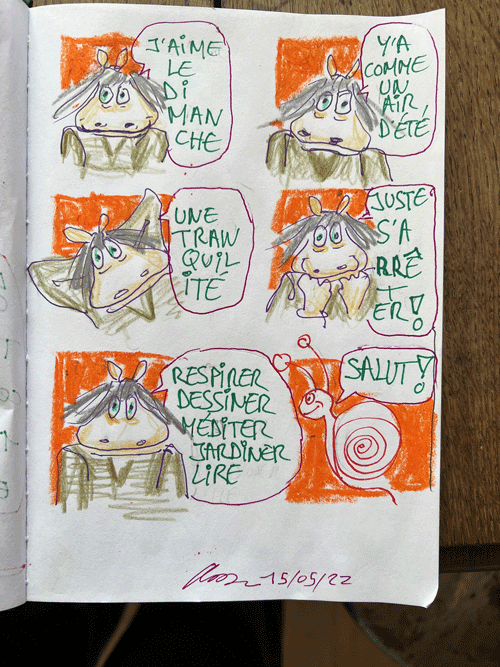 J'AIME
LE
DI
MAN
CHE
Y'A
COMME
UN
AIR
D'ÉTÉ
UNE
TRAN
QUIL
ITÉ
JUSTE
S'A
RRÊ
T
ER!
RESPIRER
DESSINER
MÉDITER
JARDINER
LIRE
SALUT!
15/05/22